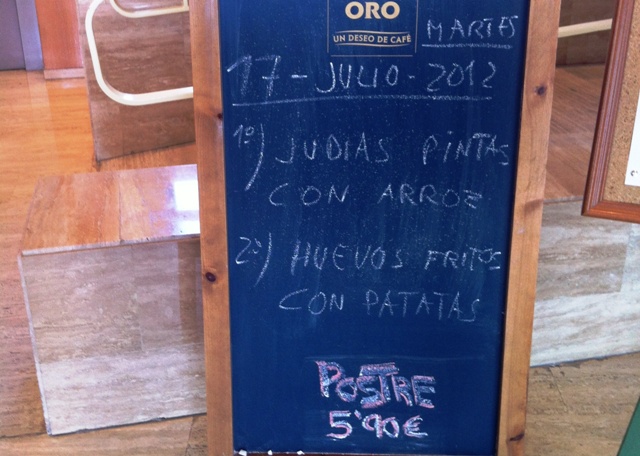 ORO
UN DESEO DE CAFÉ
MARTES
17 - JULIO - 2012
1º) JUDIAS PINTAS
CON ARROZ
2º) HUEVOS FRITOS
CON PATATAS
POSTRE
5'90€